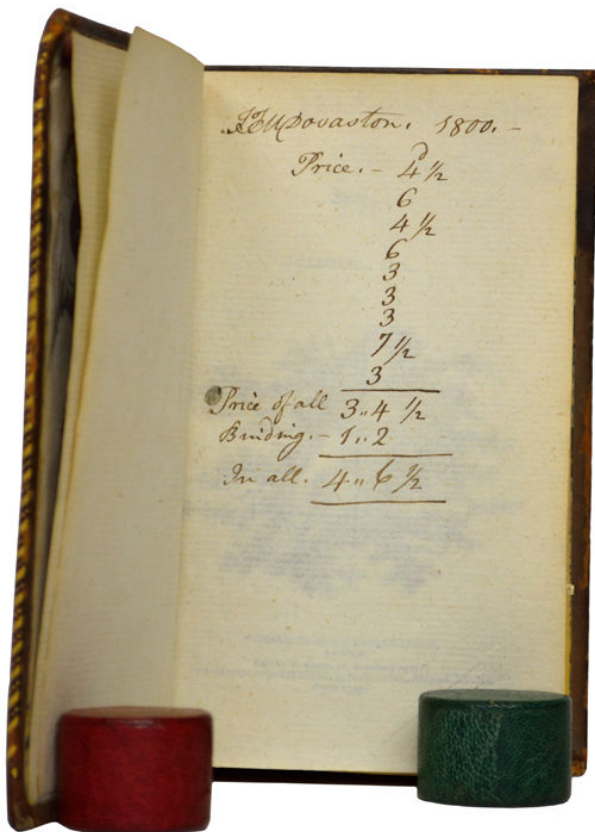 JFMDovaston. 1800.-
d
Price.- 4 1/2
6
4 1/2
6
3
3
3
7 1/2
3
Price of all 3"4 1/2
Binding.- 1"2
In all. 4"6 1/2